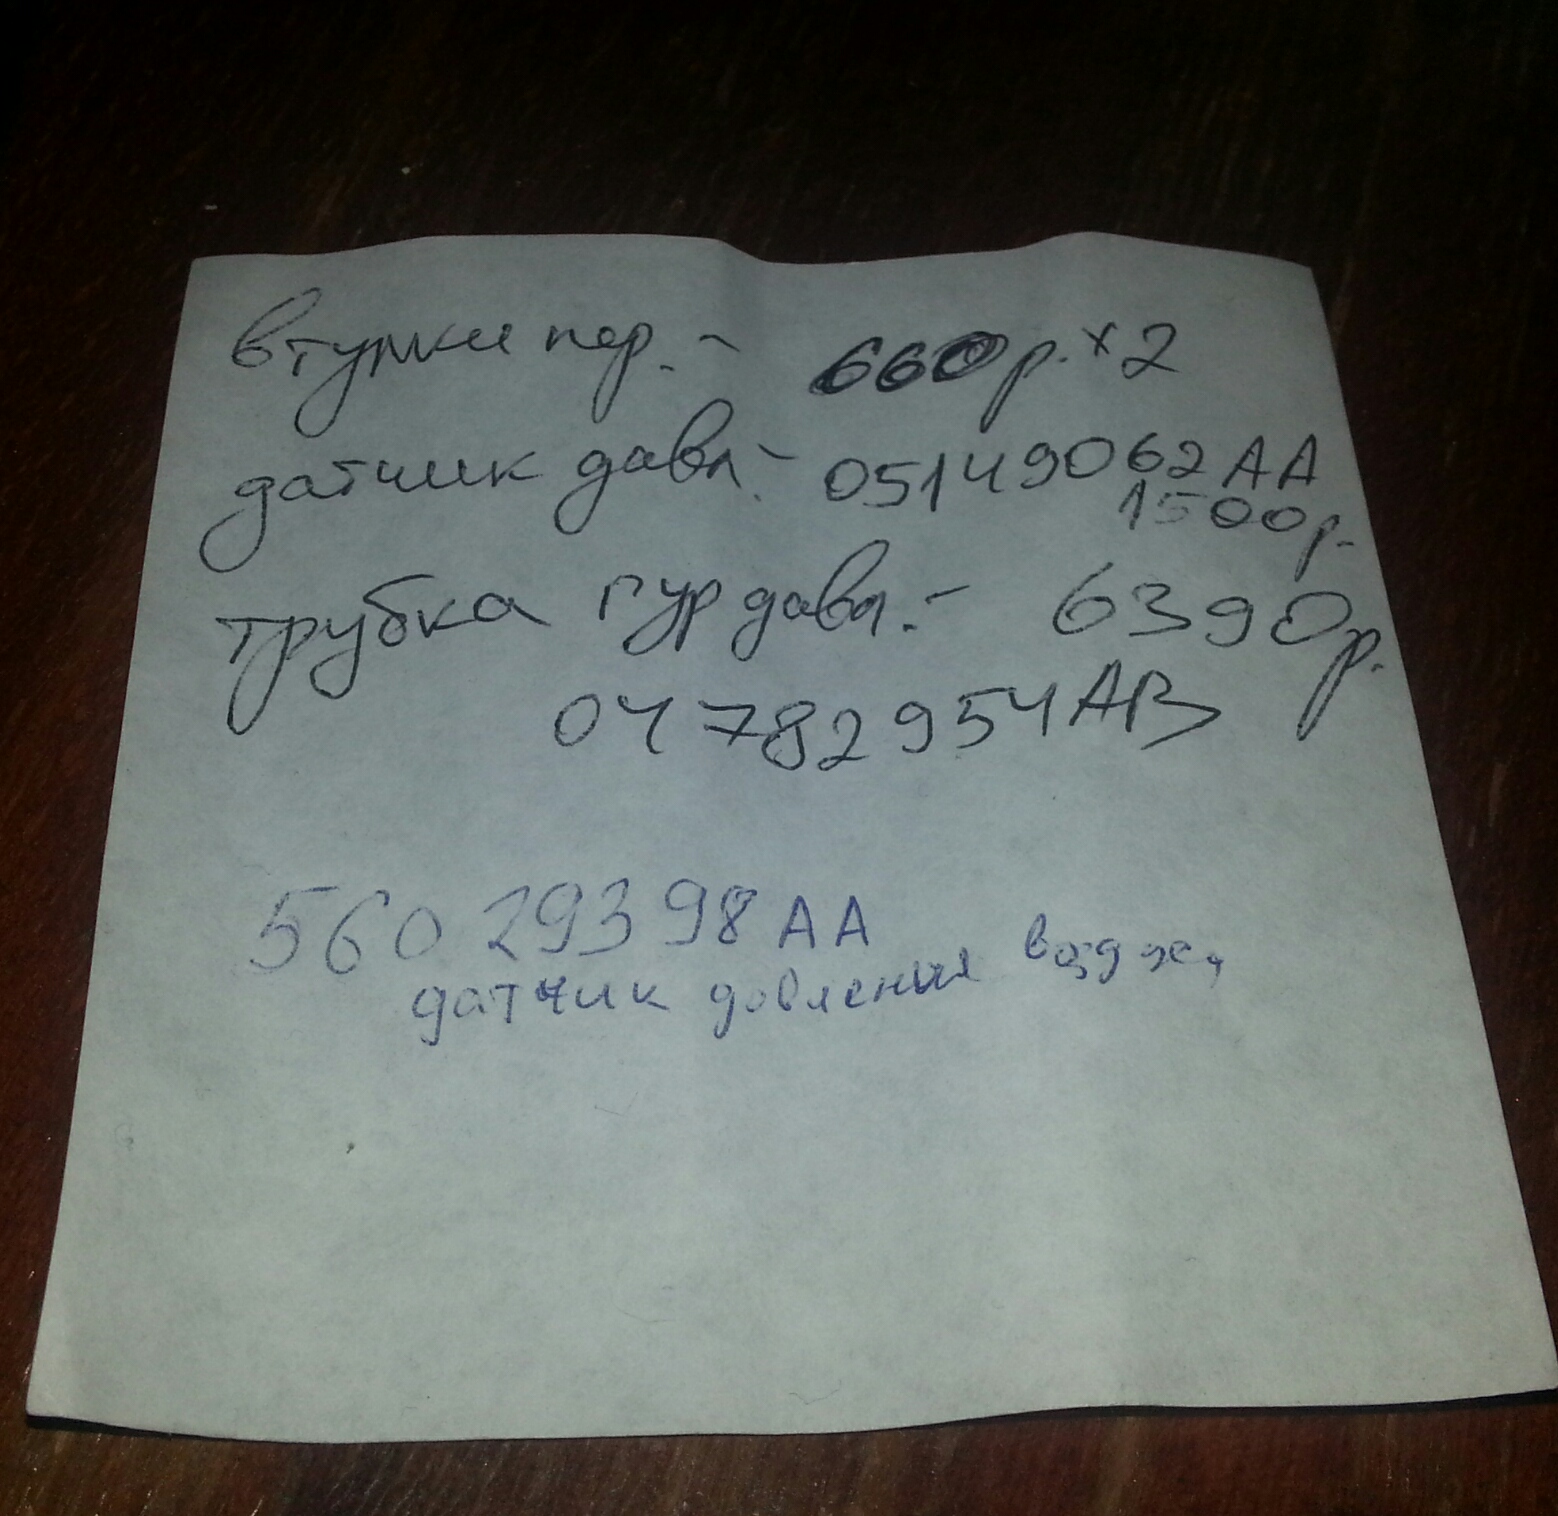 втулки пер. - 660р. x 2
датчик давл. - 05149062AA
1500р.
трубка гур давл. - 6390р.
04782954AB
56029398AA
датчик довления воздж,